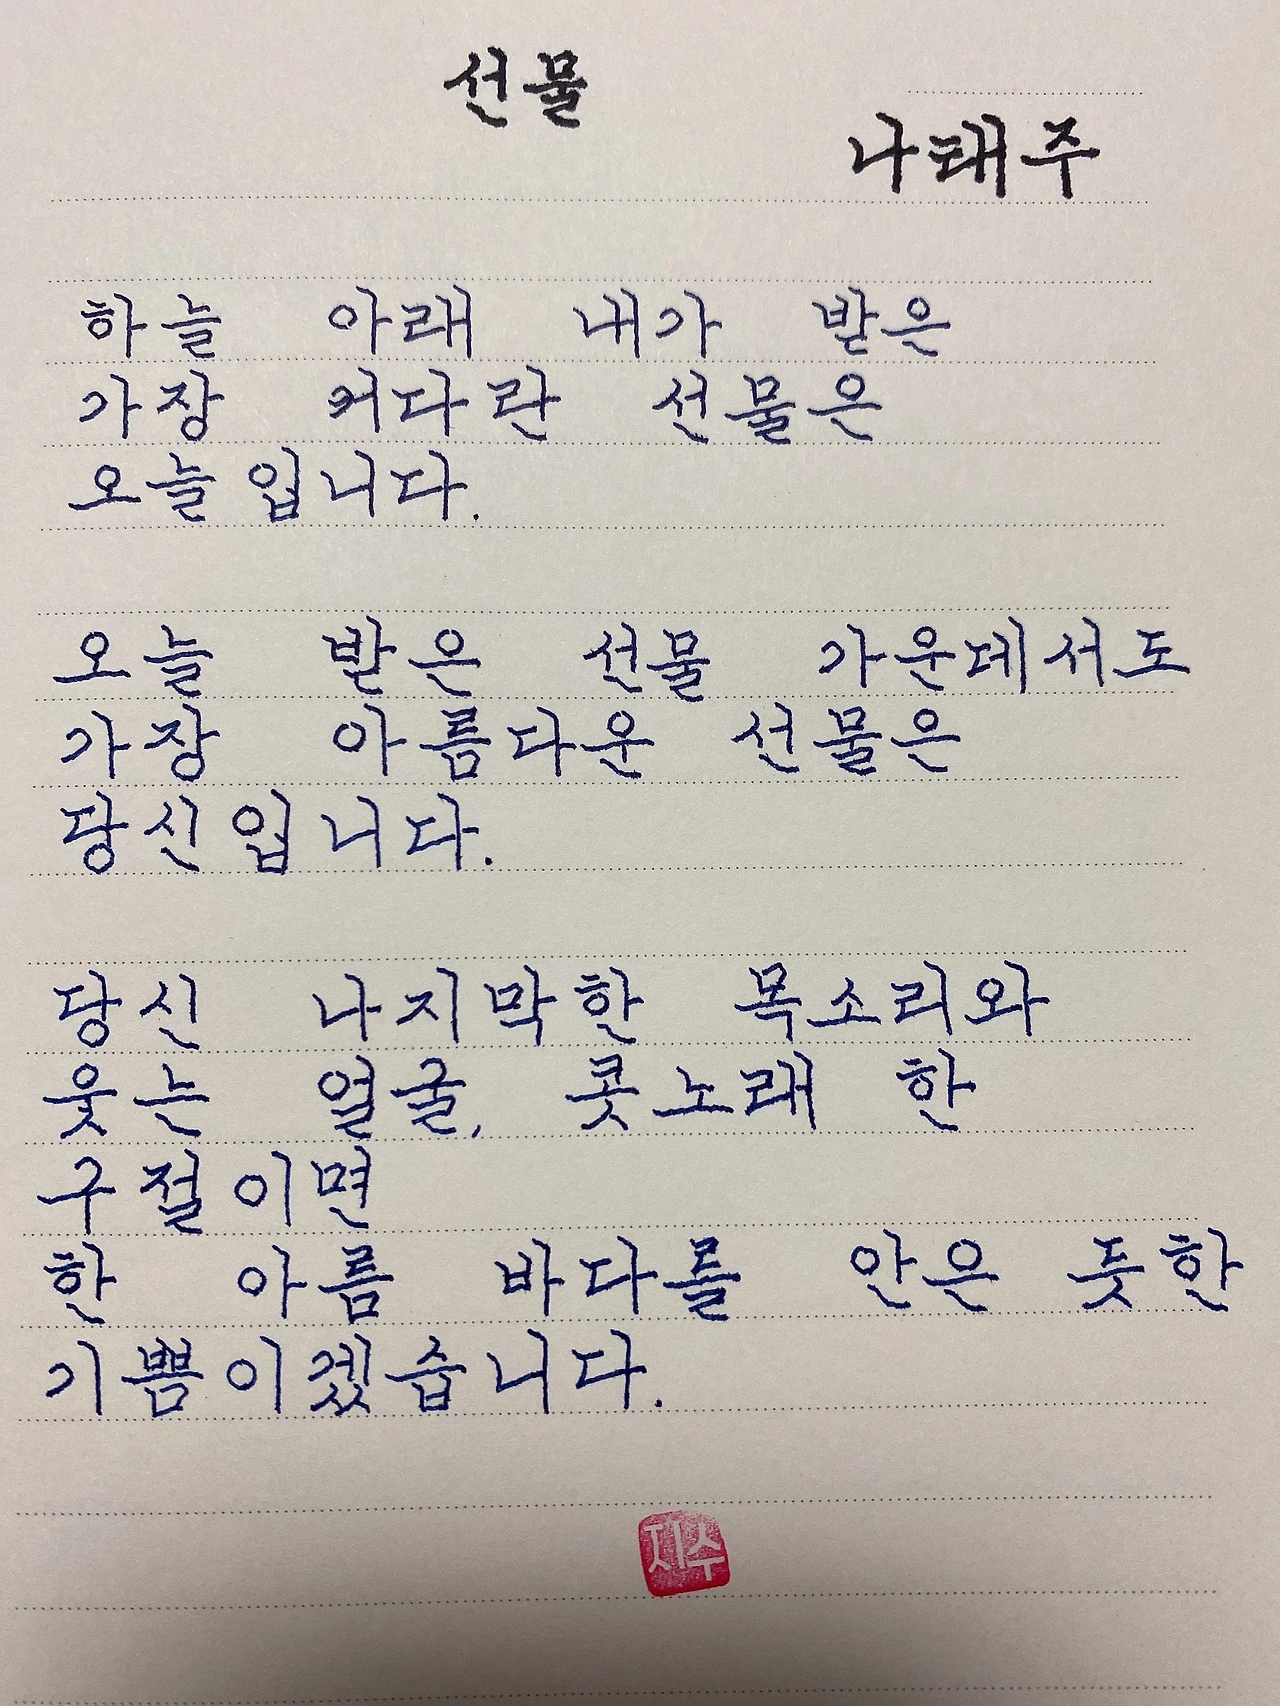 선물
나태주
하늘 아래 내가 받은
가장 커다란 선물은
오늘입니다.
오늘 받은 선물 가운데서도
가장 아름다운 선물은
당신입니다.
당신 나지막한 목소리와
웃는 얼굴, 콧노래 한
구절이면
한 아름 바다를 안은 듯한
기쁨이겠습니다.
지수